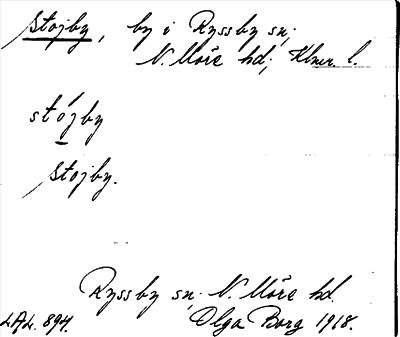 Stojby, by i Ryssby sn;
N. Möre hd; Klmr. l.
stójby
Stojby.
Ryssby sn. N. Möre hd.
LAL. 894. Olga Borg 1918.